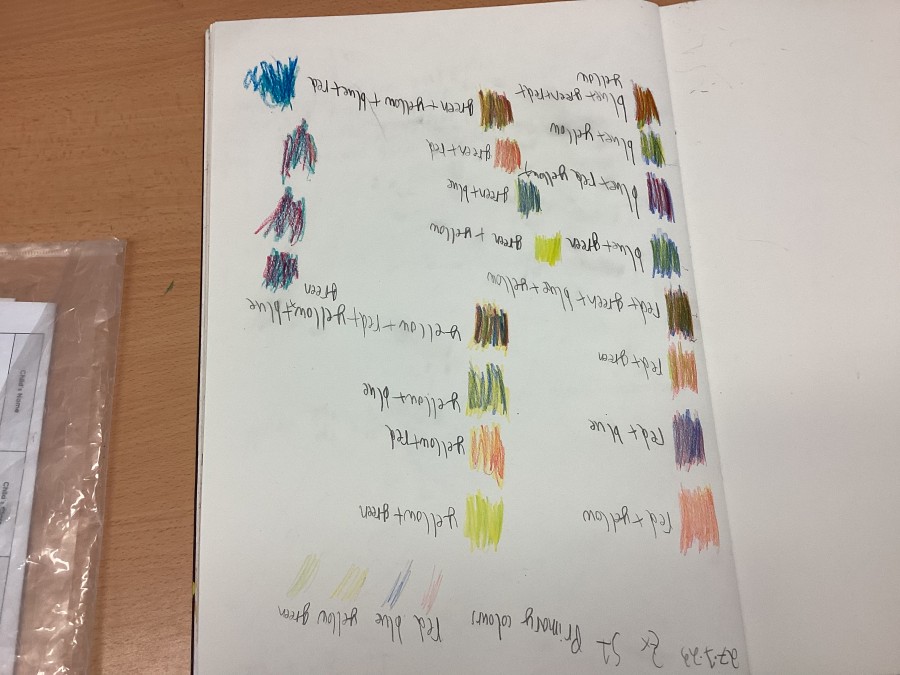 27.2.23 Ex 51 Primary colours
red blue yellow green
red + yellow
yellow + green
red + blue
yellow + red
red + green
yellow + blue
red + green + blue + yellow
yellow + red + yellow + blue
green
blue + green
green + yellow
blue + red yellow +
green + blue
blue + yellow
green + red
blue + green + red +
yellow
green + yellow + blue + red
Child's Name